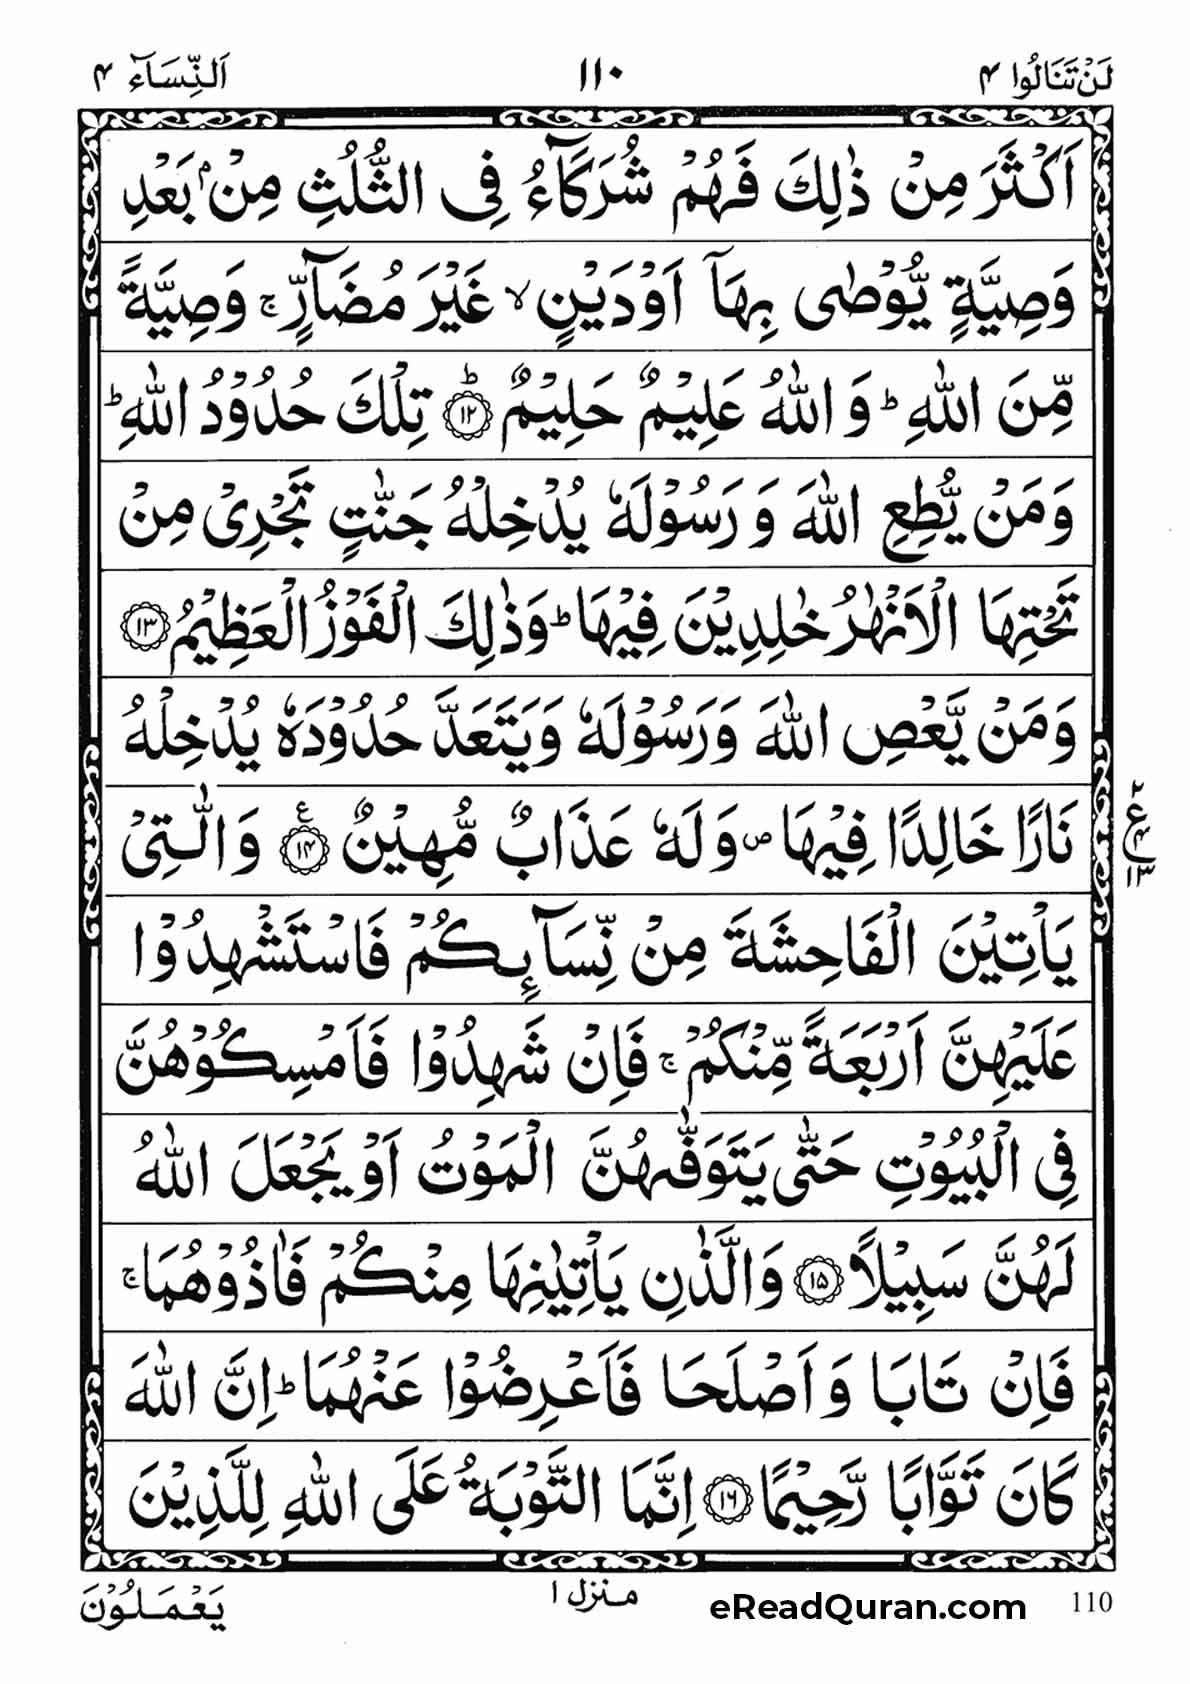 لَنْ تَنَالُوا ٤ ١١٠ اَلنِّسَآء ٤
اَكْثَرَ مِنْ ذٰلِكَ فَهُمْ شُرَكَآءُ فِى الثُّلُثِ مِنْۢ بَعْدِ
وَصِيَّةٍ يُّوْصٰى بِهَآ اَوْدَيْنٍۙ غَيْرَ مُضَآرٍّۚ وَصِيَّةً
مِّنَ اللّٰهِؕ وَ اللّٰهُ عَلِيْمٌ حَلِيْمٌؕ ﴿١٢﴾ تِلْكَ حُدُوْدُ اللّٰهِؕ
وَمَنْ يُّطِعِ اللّٰهَ وَ رَسُوْلَهٗ يُدْخِلْهُ جَنّٰتٍ تَجْرِىْ مِنْ
تَحْتِهَا الْاَنْهٰرُ خٰلِدِيْنَ فِيْهَاؕ وَذٰلِكَ الْفَوْزُ الْعَظِيْمُ ﴿١٣﴾
وَمَنْ يَّعْصِ اللّٰهَ وَرَسُوْلَهٗ وَيَتَعَدَّ حُدُوْدَهٗ يُدْخِلْهُ
نَارًا خَالِدًا فِيْهَا ص وَلَهٗ عَذَابٌ مُّهِيْنٌ ع ﴿١٤﴾ وَالّٰتِىْ
٢ ع ٤ ١٣
يَاْتِيْنَ الْفَاحِشَةَ مِنْ نِّسَآىِٕكُمْ فَاسْتَشْهِدُوْا
عَلَيْهِنَّ اَرْبَعَةً مِّنْكُمْۚ فَاِنْ شَهِدُوْا فَاَمْسِكُوْهُنَّ
فِى الْبُيُوْتِ حَتّٰى يَتَوَفّٰهُنَّ الْمَوْتُ اَوْ يَجْعَلَ اللّٰهُ
لَهُنَّ سَبِيْلًا ﴿١٥﴾ وَالَّذٰنِ يَاْتِيٰنِهَا مِنْكُمْ فَاٰذُوْهُمَاۚ
فَاِنْ تَابَا وَ اَصْلَحَا فَاَعْرِضُوْا عَنْهُمَاؕ اِنَّ اللّٰهَ
كَانَ تَوَّابًا رَّحِيْمًا ﴿١٦﴾ اِنَّمَا التَّوْبَةُ عَلَى اللّٰهِ لِلَّذِيْنَ
يَعْمَلُوْنَ منزل ١ eReadQuran.com 110